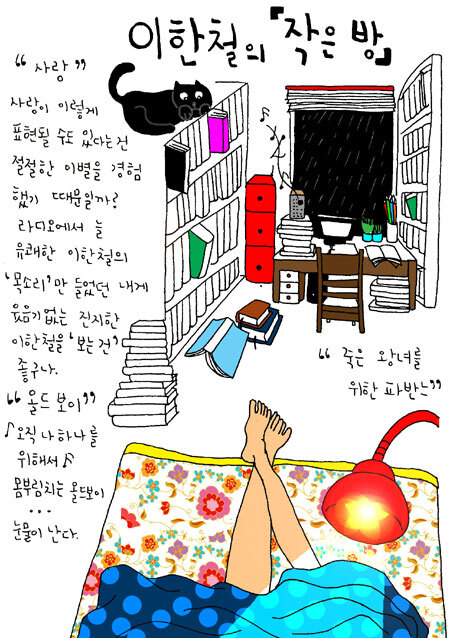 이한철의 『작은 방』
“사랑”
사랑이 이렇게
표현될 수도 있다는건
절절한 이별을 경험
했기 때문일까?
라디오에서 늘
유쾌한 이한철의
‘목소리’만 들었던 내게
웃음기없는 진지한
이한철을 ‘보는건’
좋구나.
“올드 보이”
♪오직 나 하나를
위해서♪
몸부림치는 올드보이
...
눈물이 난다.
“죽은 왕녀를
위한 파반느”